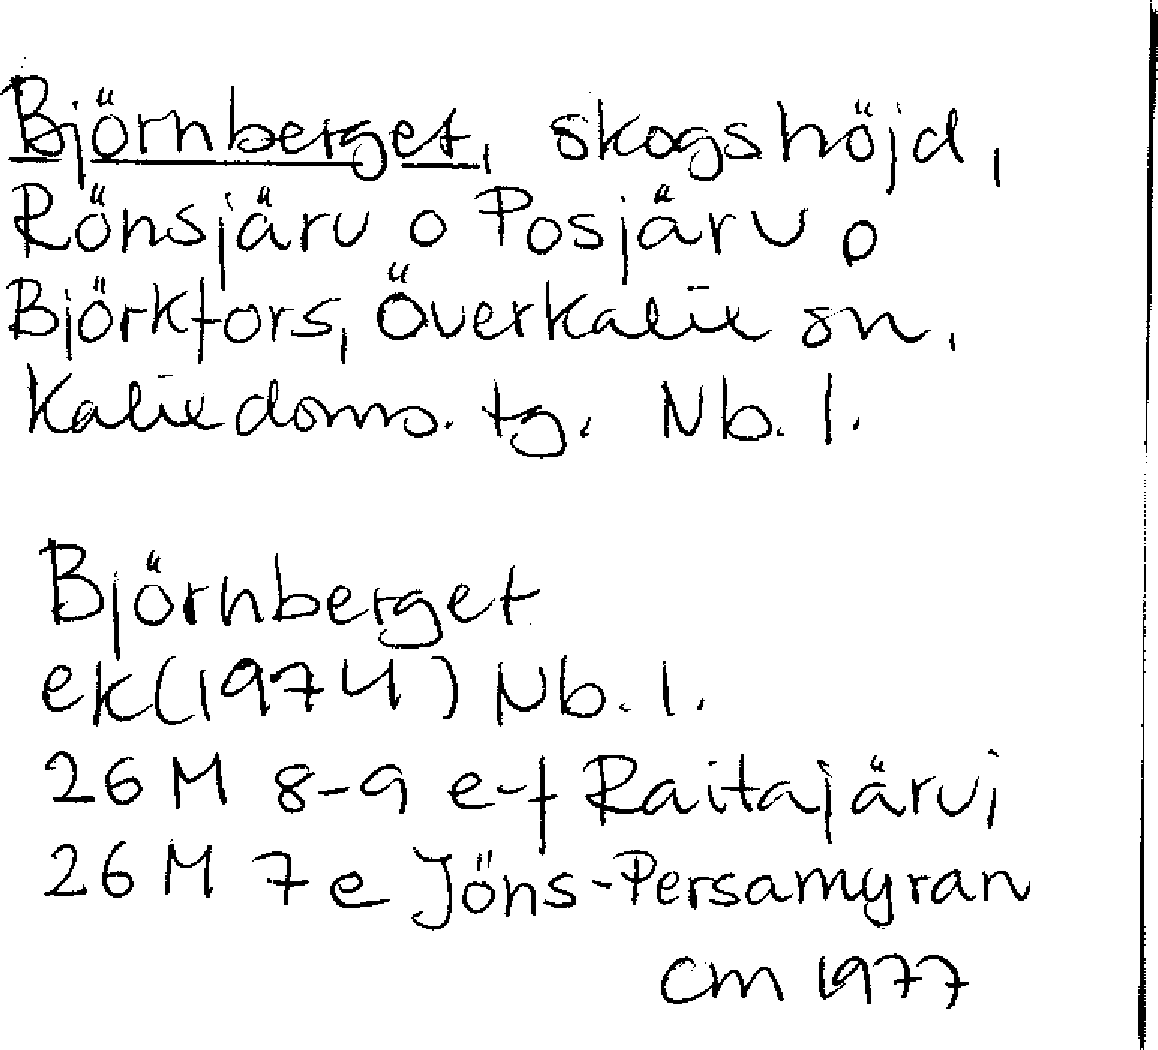 Björnberget, skogshöjd,
Rönsjärv o Posjärv o
Björkfors, Överkalix sn.
Kalix doms. tg. Nb. l.
Björnberget
ek (1974) Nb. l.
26 M 8-9 e-f Raitajärvi
26 M 7e Jöns-Persamyran
CM 1977